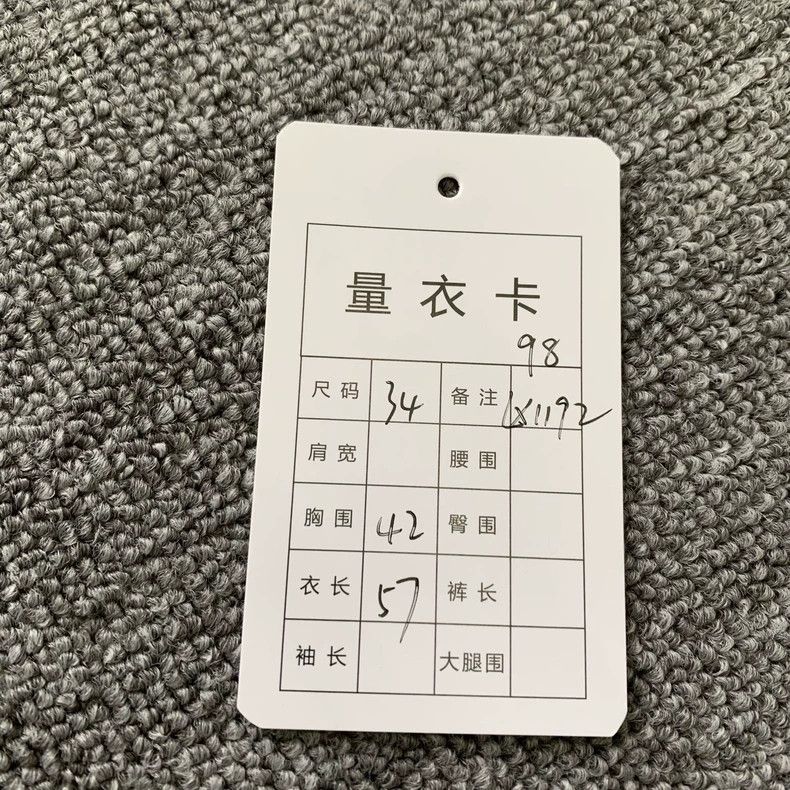 量衣卡
98
尺码 34 备注 LX1192
肩宽 腰围
胸围 42 臀围
衣长 57 裤长
袖长 大腿围